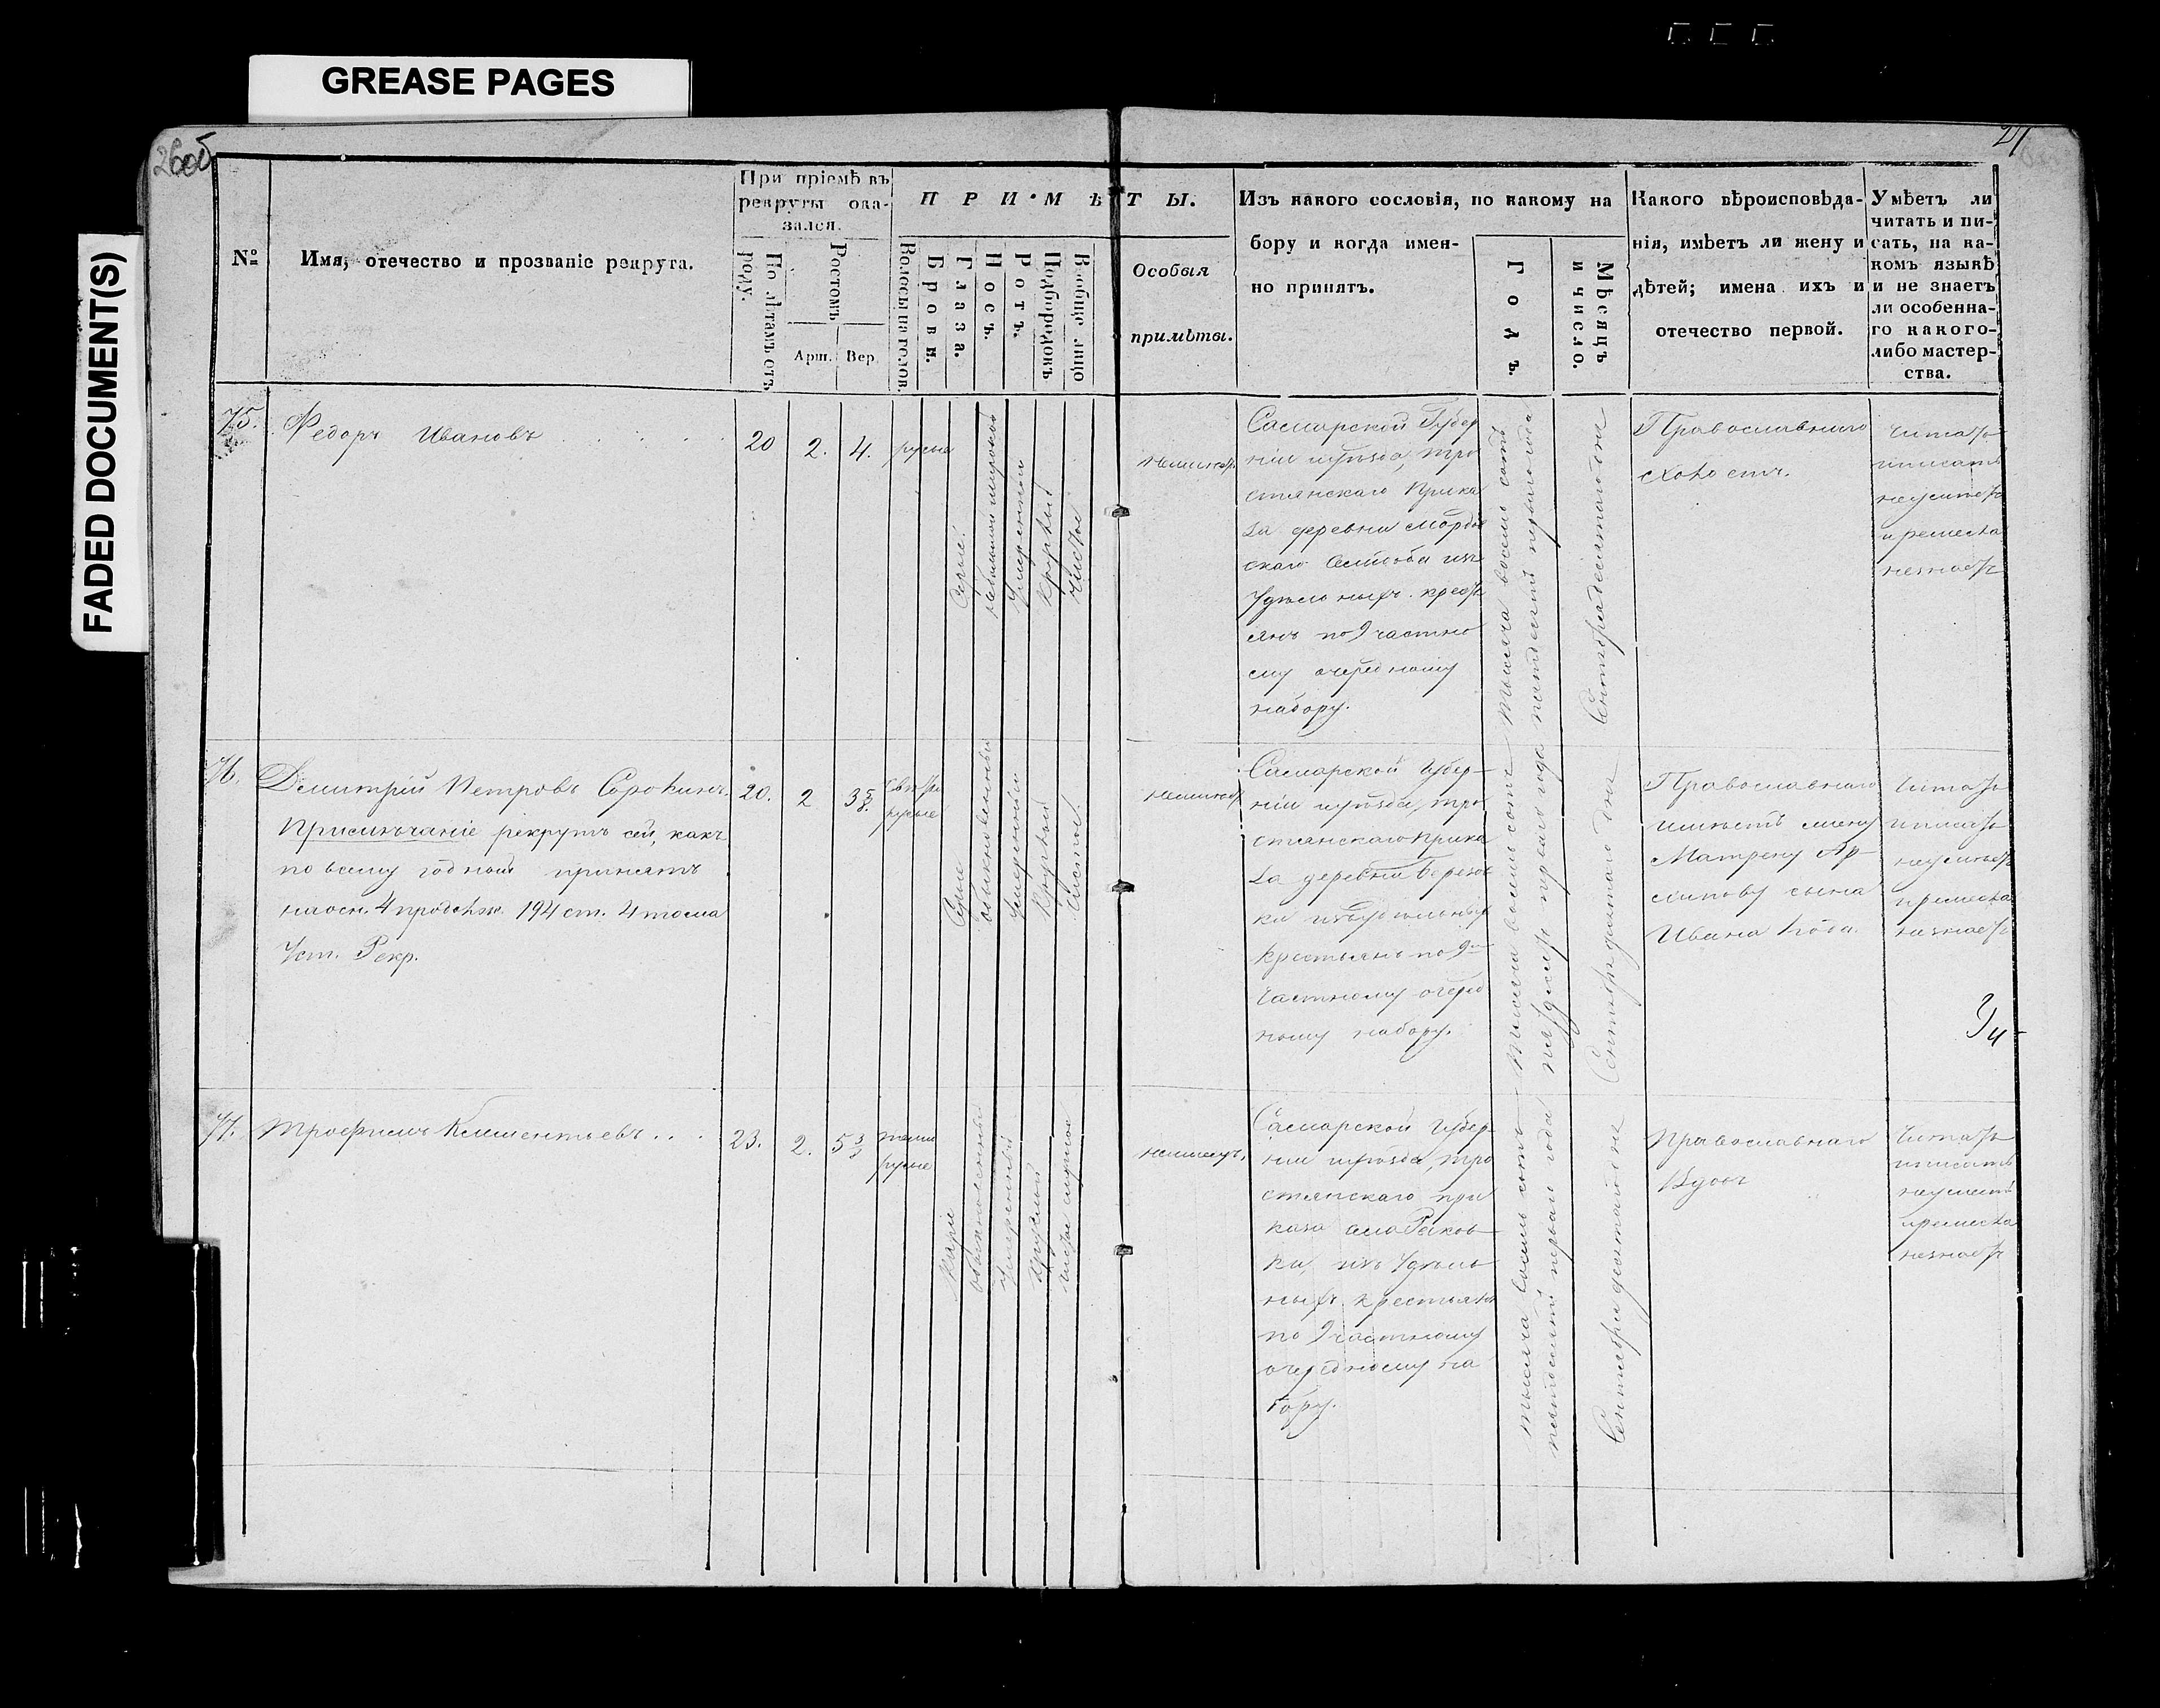 GREASE PAGES
FADED DOCUMENT(S)
26об
27
№
Имя, отечество и прозваніе рекрута.
При пріемѣ въ
рекруты ока-
зался.
По лѣтамъ отъ
роду.
Ростомъ
Арш.
Вер.
ПРИМѢТЫ.
Волосы на голов.
Брови.
Глаза.
Носъ.
Ротъ.
Подбородокъ
Вообще лицо
Особыя
примѣты.
Изъ какого сословія, по какому на
бору и когда имен-
но принятъ.
Годъ.
Мѣсяцъ
и число.
Какого вѣроисповѣда-
нія, имѣетъ ли жену и
дѣтей; имена ихъ и
отечество первой.
Умѣетъ ли
читать и пи-
сать, на ка-
комъ языкѣ
и не знаетъ
ли особенна-
го какого-
либо мастер-
ства.
75.
Федоръ Ивановъ
20
2.
4.
русые
Серые.
Умеренный
Круглый
Чистое
Самарской Губер
ніи уѣзда, тро
стянскаго Прика
за деревни
скаго
Удѣльныхъ крест
янъ по 9 частно
му очередному
набору.
тысяча восемь сотъ
пятдесятъ перваго года
Сентября десятаго дня
Православнаго
холостъ.
читать
иписать
неумѣетъ
и ремесла
незнаетъ
76.
Демитрій Петровъ Сорокинъ.
Примѣчаніе рекрутъ сей, какъ
по всему годный принятъ
наосн. 4 продолж. 194 ст. 4 тома
Уст. Рекр.
20.
2
3 5/8.
русые
Серые
обыкновенный
Умеренный
Круглый
Чистое.
Самарской Губер-
ніи уѣзда, тро
стянскаго Прика
за деревни Березов
ки изъ удѣльныхъ
крестьянъ по 9
частному очеред
ному набору.
тысяча восемь сотъ
пятдесятъ перваго года
Сентября десятаго дня
Православнаго
имѣетъ жену
Матрену Ар
хипову сына
Ивана
Читать
иписать
неумѣетъ
иремесла
незнаетъ
77.
Трофимъ Клементьевъ
23.
2.
5
темно
русые
Каріе
обыкновенный
Умеренный
Круглый
Чистое смуглое
Самарской Губер-
ніи уѣзда, тро
стянскаго при
каза села Раков
ки, изъ Удѣль
ныхъ крестьянъ
по 9 частному
очередному на
бору.
тысяча восемь сотъ
пятдесятъ перваго года
Сентября десятаго дня
Православнаго
Вдовъ
Читать
иписать
неумѣетъ
иремесла
незнаетъ